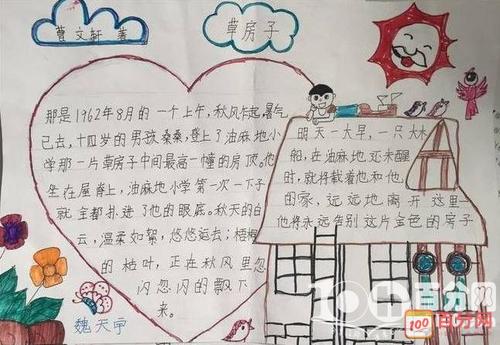 曹文轩 著
草房子
那是1962年8月的一个上午,秋风乍起,暑气
已去,十四岁的男孩桑桑,登上了油麻地小
学那一片草房子中间最高一幢的房顶。他
坐在屋脊上,油麻地小学第一次一下子
就全都扑进了他的眼底。秋天的白
云,温柔如絮,悠悠远去;梧桐
的枯叶,正在秋风里忽
闪忽闪的飘下
来。
明天一大早,一只大木
船,在油麻地还未醒
时,就将载着他和他
的家,远远地离开这里—
他将永远告别这片金色的房子
魏天宇
百分网
100 百分网